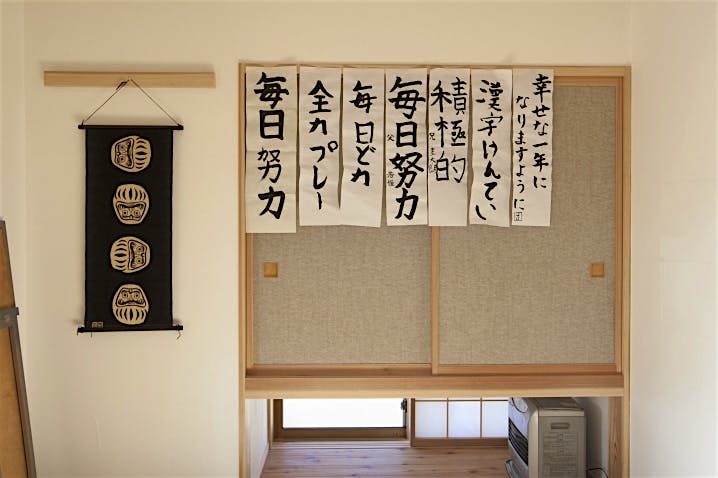 幸せな一年に
なりますように
漢字けんてい
積極的
毎日努力
父
毎日ど力
全力プレー
毎日努力